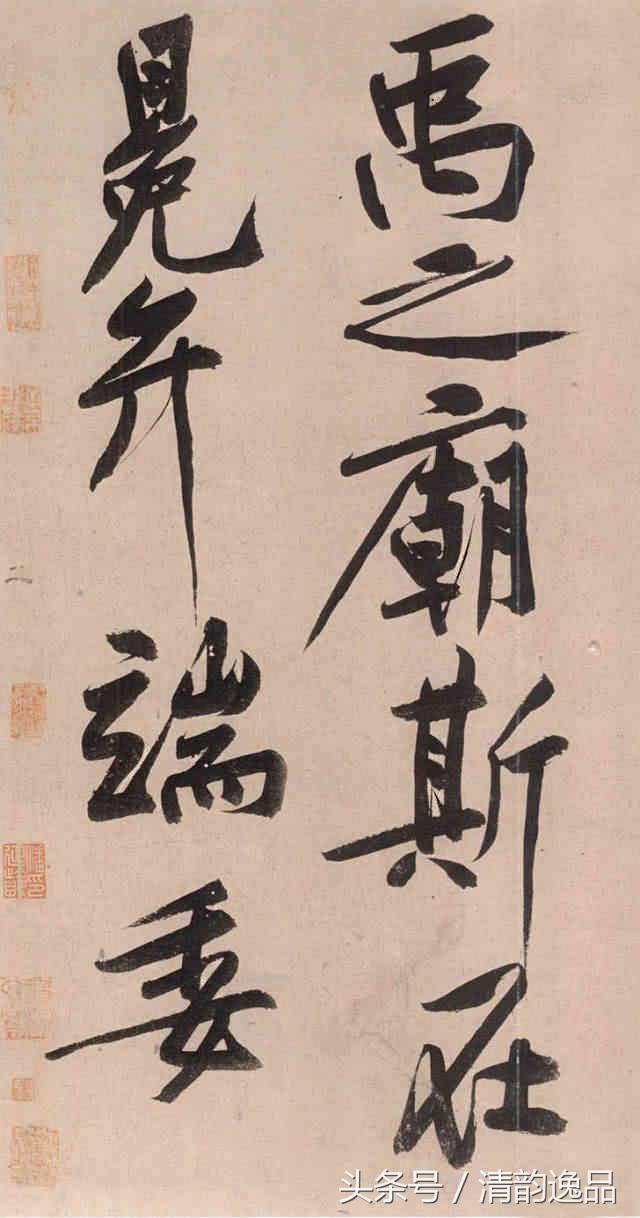 禹之廟斯在
冕弁端委
二
头条号 / 清韵逸品